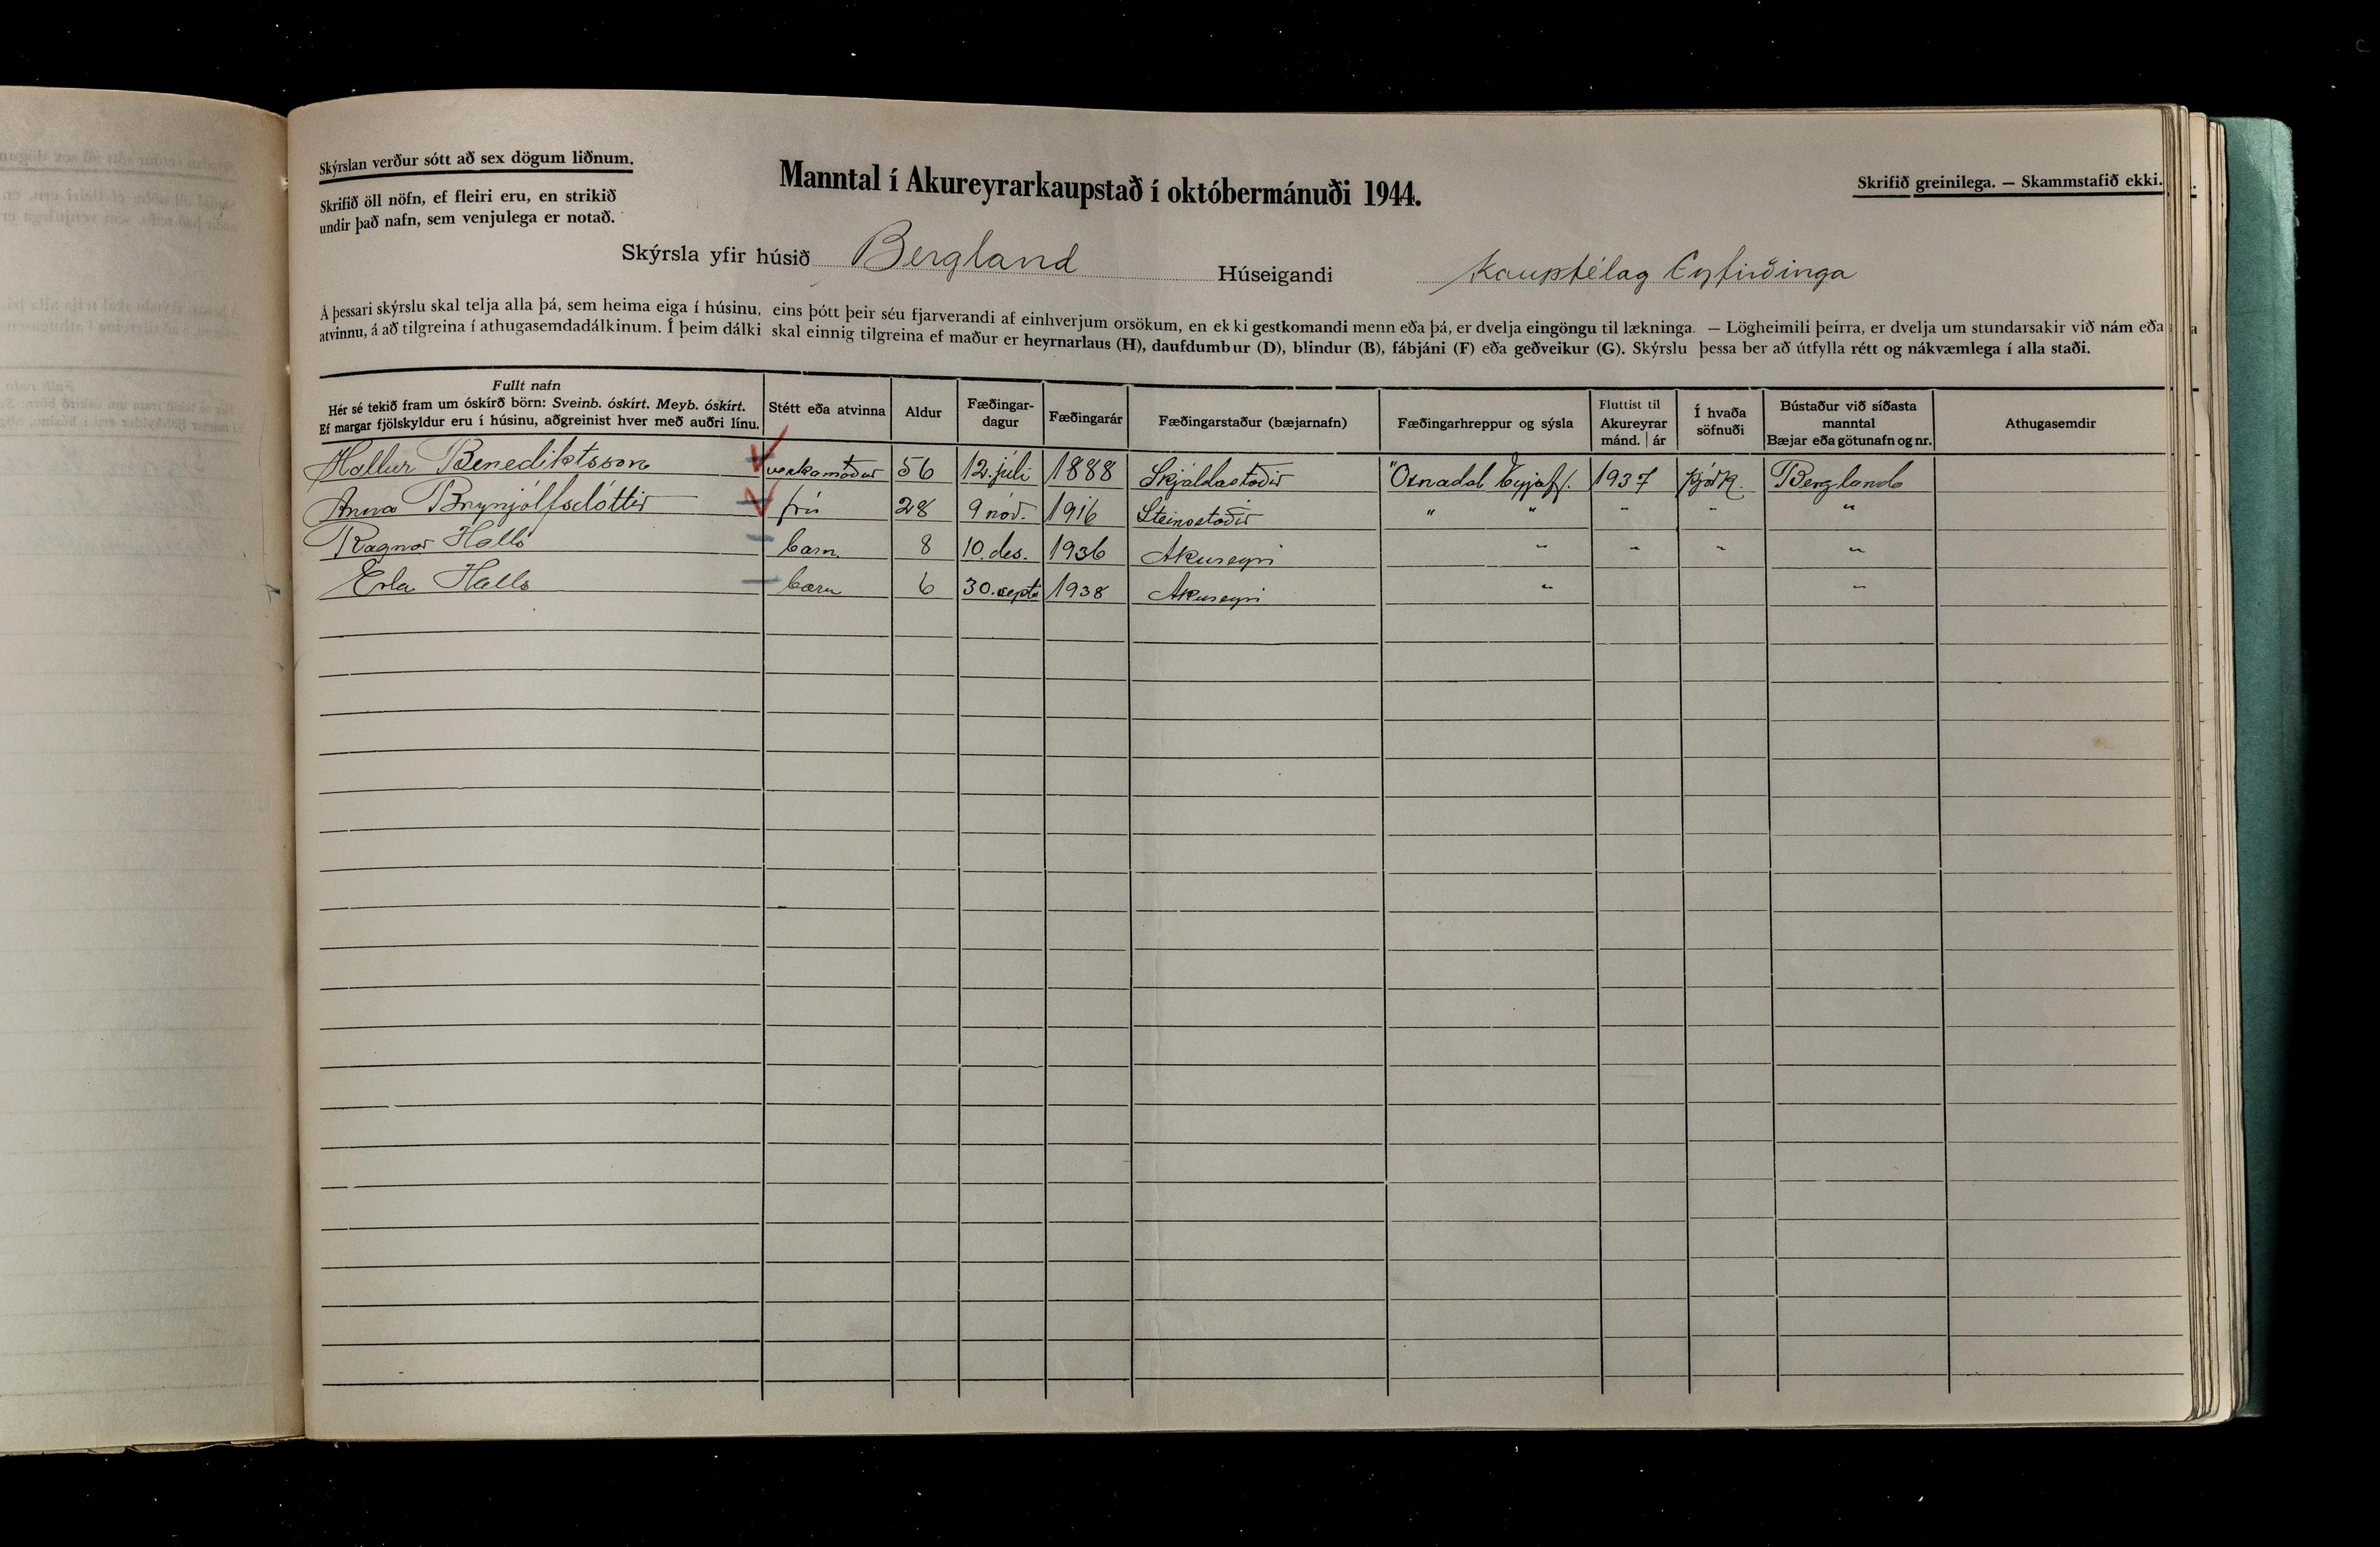 Skýrslan verður sótt að sex dögum liðnum.
Skrifið öll nöfn, ef fleiri eru, en strikið
undir það nafn, sem venjulega er notað.
Manntal í Akureyrarkaupstað í októbermánuði 1944.
Skrifið greinilega. — Skammstafið ekki.
Skýrsla yfir húsið Bergland Húseigandi Kaupfélag Eyfirðinga
Á þessari skýrslu skal telja alla þá, sem heima eiga í húsinu, eins þótt þeir séu fjarverandi af einhverjum orsökum, en ekki gestkomandi menn eða þá, er dvelja eingöngu til lækninga. — Lögheimili þeirra, er dvelja um stundarsakir við nám eða
atvinnu, á að tilgreina í athugasemdadálkinum. Í þeim dálki skal einnig tilgreina ef maður er heyrnarlaus (H), daufdumbur (D), blindur (B), fábjáni (F) eða geðveikur (G). Skýrslu þessa ber að útfylla rétt og nákvæmlega í alla staði.
Fullt nafn
Hér sé tekið fram um óskírð börn: Sveinb. óskírt. Meyb. óskírt.
Ef margar fjölskyldur eru í húsinu, aðgreinist hver með auðri línu.
Stétt eða atvinna
Aldur
Fæðingar-
dagur
Fæðingarár
Fæðingarstaður (bæjarnafn)
Fæðingarhreppur og sýsla
Fluttist til
Akureyrar
mánd. | ár
Í hvaða
söfnuði
Bústaður við síðasta
manntal
Bæjar eða götunafn og nr.
Athugasemdir
Hallur Benediktsson verkamaður 56 12. júli 1888 Skjaldastaðir Öxnadal Eyjaf. 1937 þjóðk. Bergland
Anna Brynjólfsdóttir frú 28 9 nóv. 1916 Steinstaðir " " " " "
Ragnar Halls barn 8 10. des. 1936 Akureyri " " " "
Erla Halls barn 6 30. sept 1938 Akureyri " "